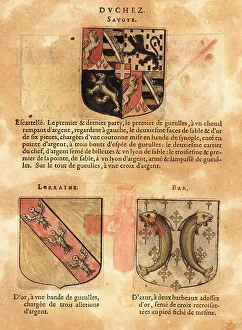 DVCHEZ.
SAVOYE.
Escartellé. Le premier & dernier party, le premier de gueulles, à vn cheual
rampant d'argent, regardant à gauche, le deuxiesme faces de sable & d'or
de six pieces, chargées d'vne couronne mise en bande de synople, enté en
pointe d'argent, à trois bouts d'espée de gueulles: le deuxiesme cartier
du chef, d'argent semé de billettes & vn lyon de sable: le troisiesme & pre-
mier de la pointe, de sable, à vn lyon d'argent, armé & lampassé de gueul-
les. Sur le tout, de gueulles à vne croix d'argent.
LORRAINE.
BAR.
D'or, à vne bande de gueulles,
chargée de trois allerions
d'argent.
D'azur, à deux barbeaux adossez
d'or, semé de croix recroiset-
tées au pied fiché de mesme.